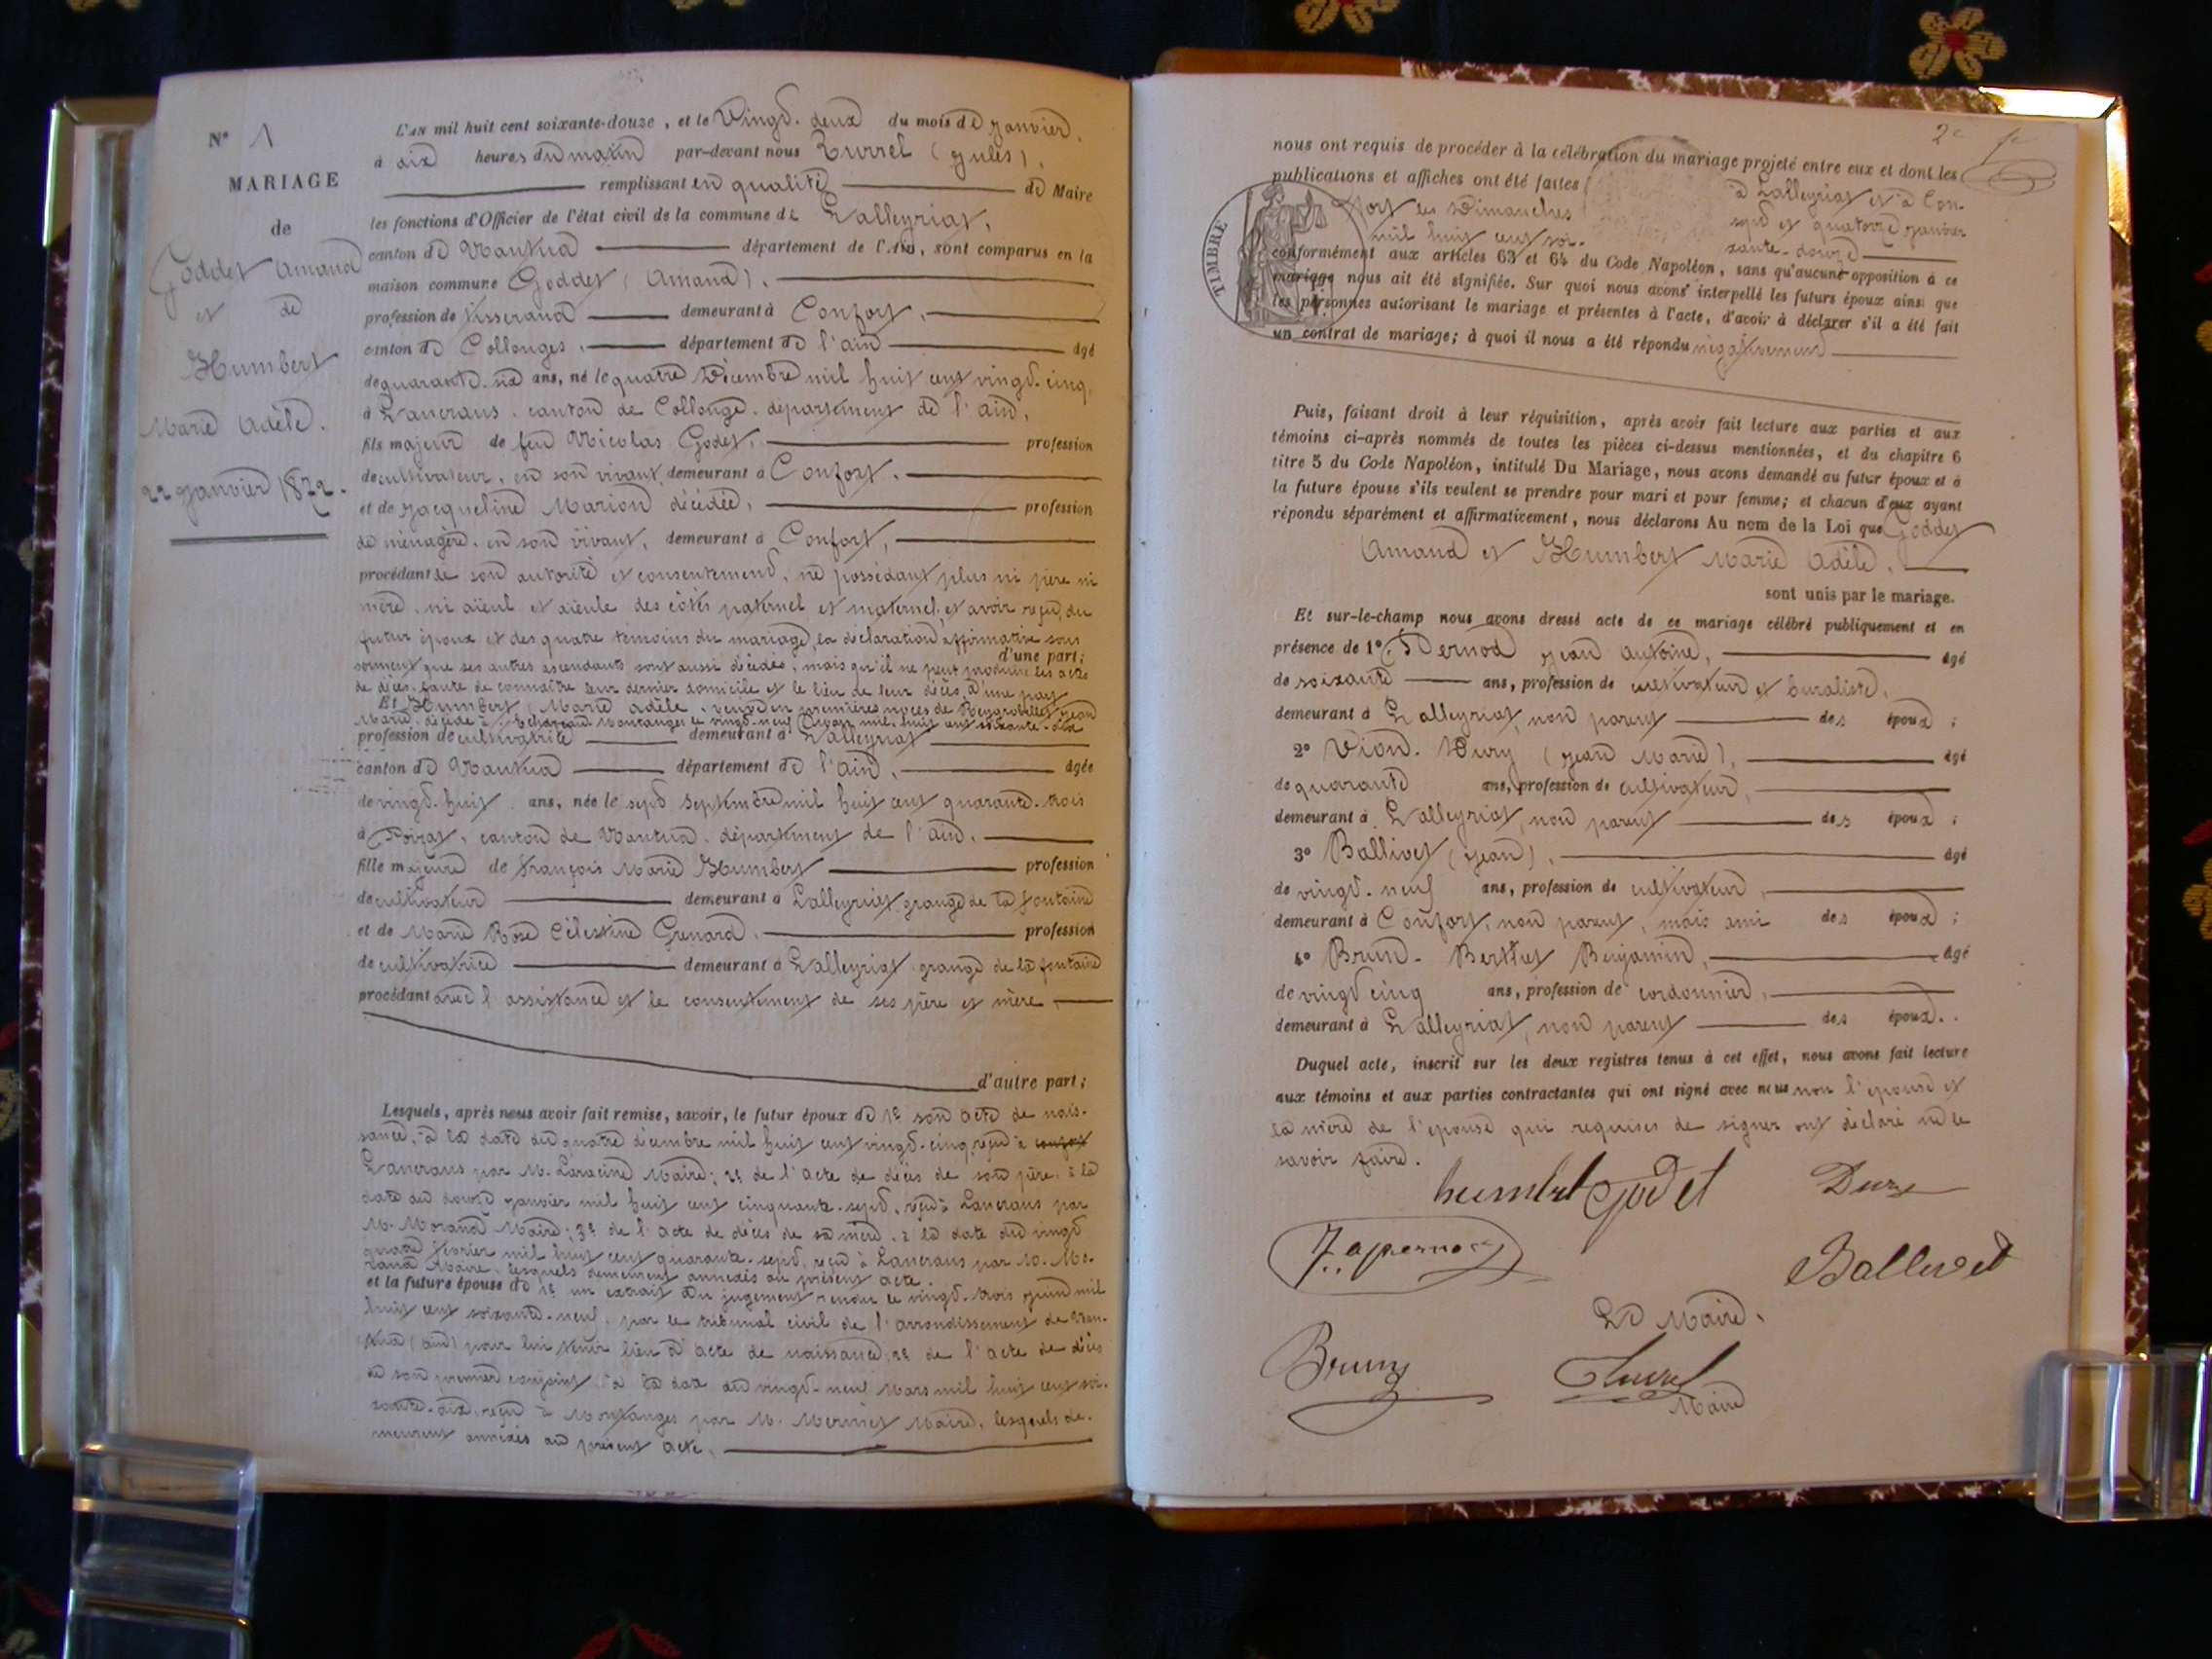 N° 1
MARIAGE
de
Goddet Amand
et de
Humbert
Marie Adèle.
22 janvier 1872.
L'AN mil huit cent soixante-douze, et le Vingt-deux du mois de janvier,
à dix heures du matin par-devant nous Turrel (Jules),
remplissant en qualité de Maire
les fonctions d'Officier de l'état civil de la commune de Lalleyriat,
canton de Nantua département de l'Ain, sont comparus en la
maison commune Goddet (Amand),
profession de tisserand demeurant à Confort,
canton de Collonges, département de l'ain âgé
de quarante-six ans, né le quatre Décembre mil huit cent vingt-cinq,
à Lancrans, canton de Collonge, département de l'ain,
fils majeur de feu Nicolas Godet, profession
de cultivateur, en son vivant demeurant à Confort,
et de Jacqueline Marion décédée, profession
de ménagère, en son vivant, demeurant à Confort,
procédant de son autorité et consentement, ne possédant plus ni père ni
mère, ni aïeul et aïeule des côtés paternel et maternel, et avoir reçu, du
futur époux et des quatre témoins du mariage, la déclaration affirmative sous
d'une part;
serment que ses autres ascendants sont aussi décédés, mais qu'il ne peut produire les actes
de décès, faute de connaître leur dernier domicile et le lieu de leur décès, D'une part
Et Humbert (Marie Adèle, veuve en premières noces de Reygrobellet, Jean
Marie, décédé à Montanges le vingt-neuf Mars mil huit cent soixante-dix
profession de cultivatrice demeurant à Lalleyriat
canton de Nantua département de l'ain, âgée
de vingt-huit ans, née le sept Septembre mil huit cent quarante-trois
à Poizat, canton de Nantua, département de l'ain,
fille majeure de François Marie Humbert profession
de cultivateur demeurant à Lalleyriat, grange de la fontaine
et de Marie Rose Célestine Grenard, profession
de cultivatrice demeurant à Lalleyriat, grange de la fontaine
procédant avec l'assistance et le consentement de ses père et mère
d'autre part;
Lesquels, après nous avoir fait remise, savoir, le futur époux de 1° son acte de nais-
sance, à la date du quatre décembre mil huit cent vingt-cinq, reçu à confort
Lancrans par M. Laracine Maire; 2° de l'acte de décès de son père, à la
date du douze janvier mil huit cent cinquante-sept, reçu à Lancrans par
M. Morand Maire; 3° de l'acte de décès de sa mère, à la date du vingt
quatre février mil huit cent quarante-sept, reçu à Lancrans par M. Mo-
rand Maire, lesquels demeurent annexés au présent acte.
et la future épouse de 1° un extrait du jugement rendu le vingt-trois juin mil
huit cent soixante-neuf, par le tribunal civil de l'arrondissement de Nan-
tua (ain) pour lui tenir lieu d'acte de naissance; 2° de l'acte de décès
de son premier conjoint, à la date du vingt-neuf Mars mil huit cent soi-
xante-dix, reçu à Montanges par M. Mermet Maire, lesquels de-
meurent annexés au présent acte.
2e
nous ont requis de procéder à la célébration du mariage projeté entre eux et dont les
publications et affiches ont été faites à Lalleyriat et à Con-
fort les Dimanches sept et quatorze janvier
mil huit cent soi- xante-douze
TIMBRE
conformément aux articles 63 et 64 du Code Napoléon, sans qu'aucune opposition à ce
mariage nous ait été signifiée. Sur quoi nous avons interpellé les futurs époux ainsi que
les personnes autorisant le mariage et présentes à l'acte, d'avoir à déclarer s'il a été fait
un contrat de mariage; à quoi il nous a été répondu négativement
Puis, faisant droit à leur réquisition, après avoir fait lecture aux parties et aux
témoins ci-après nommés de toutes les pièces ci-dessus mentionnées, et du chapitre 6
titre 5 du Code Napoléon, intitulé Du Mariage, nous avons demandé au futur époux et à
la future épouse s'ils veulent se prendre pour mari et pour femme; et chacun d'eux ayant
répondu séparément et affirmativement, nous déclarons Au nom de la Loi que Goddet
Amand et Humbert Marie Adèle,
sont unis par le mariage.
Et sur-le-champ nous avons dressé acte de ce mariage célébré publiquement et en
présence de 1° Pernod Jean Antoine, âgé
de soixante ans, profession de cultivateur et buraliste,
demeurant à Lalleyriat, non parent des époux;
2° Vion-Dury (Jean Marie), âgé
de quarante ans, profession de cultivateur,
demeurant à Lalleyriat, non parent des époux;
3° Ballivet (Jean), âgé
de vingt-neuf ans, profession de cultivateur,
demeurant à Confort, non parent, mais ami des époux;
4° Brun-Berthet Benjamin, âgé
de vingt cinq ans, profession de cordonnier,
demeurant à Lalleyriat, non parent des époux.
Duquel acte, inscrit sur les deux registres tenus à cet effet, nous avons fait lecture
aux témoins et aux parties contractantes qui ont signé avec nous non l'épouse et
la mère de l'épouse qui requises de signer ont déclaré ne le
savoir faire.
humbert Godet Dury
J. a pernod
Ballivet
Le Maire,
Brun
Turrel
Maire